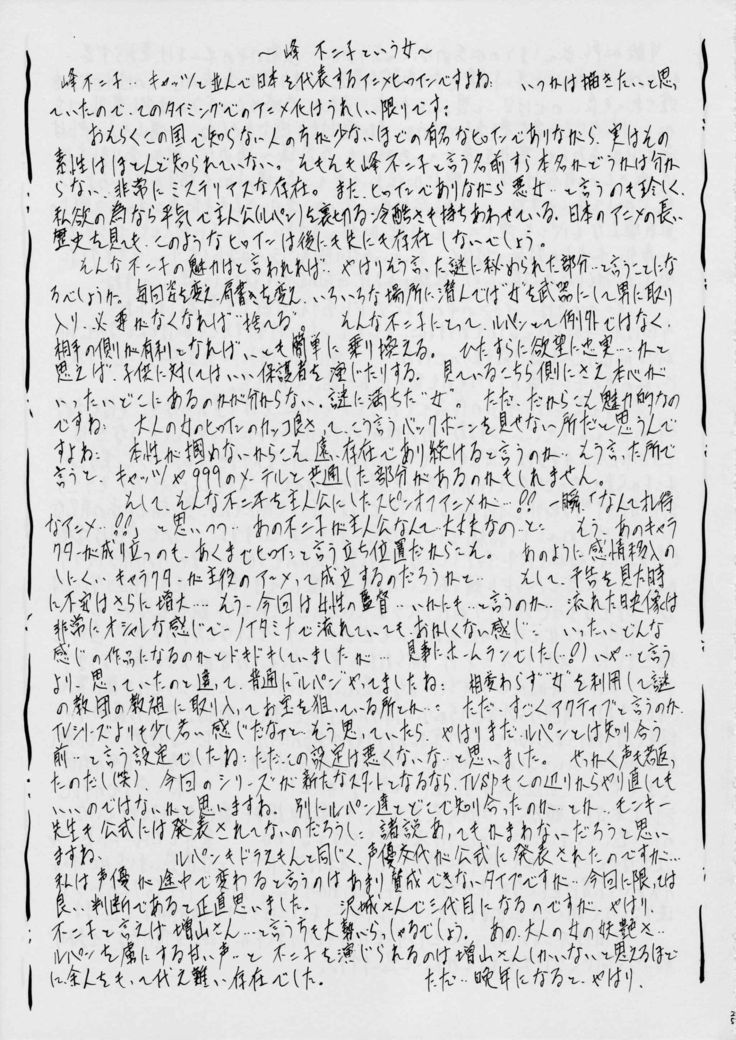 ～峰 不二子という女～
峰不二子… キャッツと並んで日本を代表するアニメヒロインですよね… いつかは描きたいと思っ
ていたので、このタイミングでのアニメ化はうれしい限りです…
おそらくこの国で知らない人の方が少ないほどの有名なヒロインでありながら、実はその
素性はほとんど知られていない。そもそも峰不二子と言う名前すら本名かどうかは分か
らない、非常にミステリアスな存在。また、ヒロインでありながら悪女…と言うのも珍しく、
私欲の為なら平気で主人公(ルパン)を裏切る冷酷さも持ちあわせている。日本のアニメの長い
歴史を見ても、このようなヒロインは後にも先にも存在しないでしょう。
そんな不二子の魅力はと言われれば… やはりそう言った謎に秘められた部分…と言うことにな
るでしょうか。毎回姿を変え、肩書きを変え、いろいろな場所に潜んでは"女"を武器にして男に取り
入り、必要がなくなれば"捨てる"。 そんな不二子にとって、ルパンとて例外ではなく、
相手の側が有利となれば、いとも簡単に乗り換える。 ひたすらに欲望に忠実…かと
思えば、子供に対してはいい保護者を演じたりする。 見ているこちら側にさえ本心が
いったいどこにあるのかが分からない、謎に満ちた"女"。 ただ、だからこそ魅力的なの
ですね… 大人の女のヒロインのカッコ良さって、こう言うバックボーンを見せない所だと思うんで
すよね… 本性が掴めないからこそ、遠い存在であり続けると言うのか… そう言った所で
言うと、キャッツや999のメーテルと共通した部分があるのかもしれません。
そして、そんな不二子を主人公にしたスピンオフアニメが…!! 一瞬、「なんてオレ得
なアニメ…!!」と思いつつ… あの不二子が主人公なんて…大丈夫なの…と… もう、あのキャラ
クターが成り立つのも、あくまでヒロインと言う立ち位置だからこそ。 あのように感情移入の
しにくいキャラクターが主役のアニメって成立するのだろうかと… そして、予告を見た時
に不安はさらに増大… もう…今回は女性の監督…いかにも…と言うのか… 流れた映像は
非常にオシャレな感じで…ノイタミナで流れていてもおかしくない感じ… いったいどんな
感じの作品になるのかとドキドキしていましたが… 見事にホームランでした(…!) いや…と言う
より、思っていたのと違って、普通に"ルパン"やってましたね… 相変わらず"女"を利用して謎
の教団の教祖に取り入ってお宝を狙っている所とか… ただ、すごくアクティブと言うのか、
TVシリーズよりも少し若い感じだなァと…そう思っていたら、やはりまだルパンとは知り合う
前…と言う設定でしたね…ただ、この設定は悪くないな…と思いました。 せっかく声も若返っ
たのだし(笑)、今回のシリーズが新たなスタートとなるなら、TVSPもこの辺りからやり直しても
いいのではないかと思いますね。別にルパン達とどこで知り合ったのか…とか… モンキー
先生も公式には発表されてないのだろうし… 諸説あってもかまわないだろうと思い
ますね。 ルパンもドラえもんと同じく、声優交代が公式に発表されたのですが…
私は声優が途中で変わると言うのはあまり賛成できないタイプですが…今回に限っては
良い判断であると正直思いました。 沢城さんで三代目になるのですが、やはり、
不二子と言えば増山さん…と言う方も大勢いらっしゃるでしょう。あの、大人の女の妖艶さ…
ルパンを虜にする甘い声…と、不二子を演じられるのは増山さんしかいないと思えるほど
に余人をもって代え難い存在でした。 ただ…晩年になると、やはり、